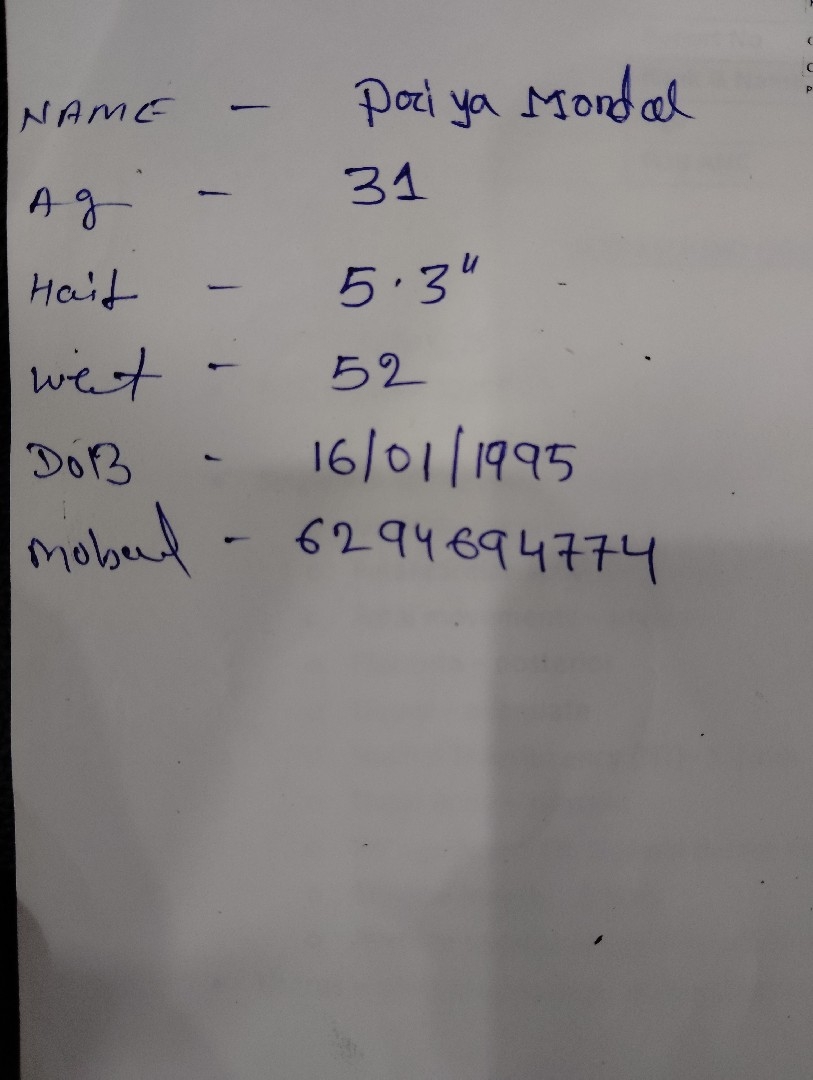 NAME - Poriya Mondal
Ag - 31
Hait - 5.3"
weit - 52
DOB - 16/01/1995
Mobaul - 6294694774